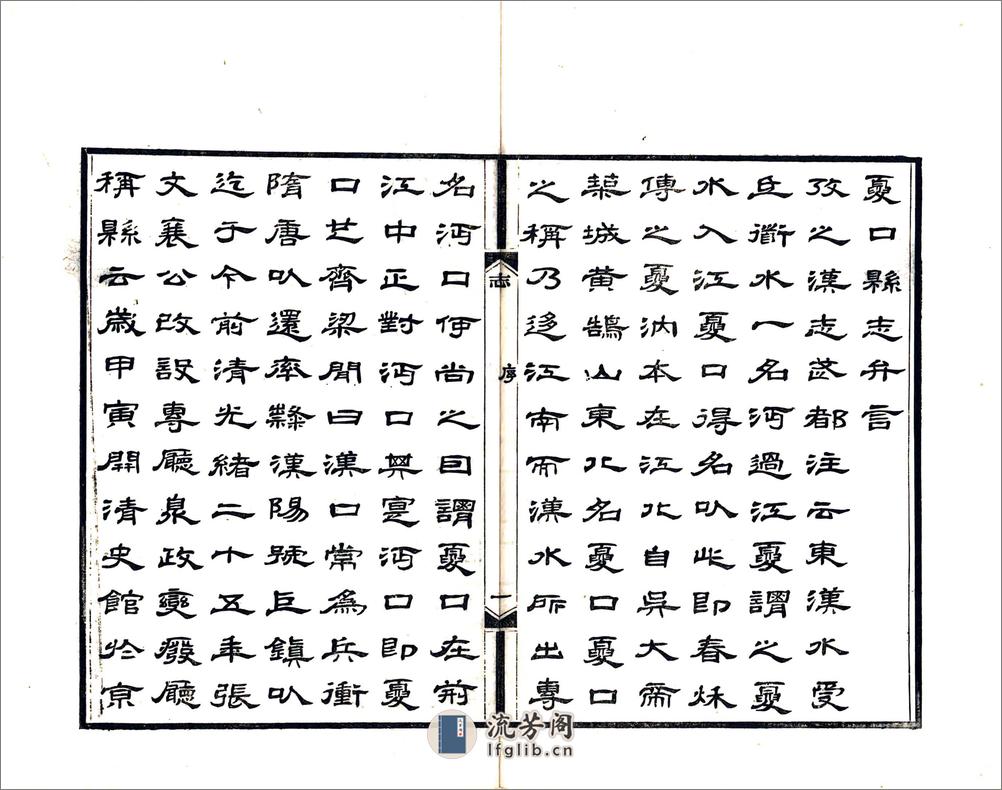 夏口縣志弁言
攷之漢志武都注云東漢水受
氐衟水一名沔過江夏謂之夏
水入江夏口得名以此即春秋
傳之夏汭本在江北自吳大帝
築城黃鵠山東北名夏口夏口
之稱乃迻江南而漢水所出專
志
序
一
名沔口伊尚之曰謂夏口在荊
江中正對沔口其寔沔口即夏
口也齊梁閒曰漢口常為兵衝
隋唐以還率隸漢陽號巨鎮以
迄于今前清光緒二十五年張
文襄公改設專廳泉政變廢廳
稱縣云歲甲寅開清史館於京
流芳阁
lfglib.cn